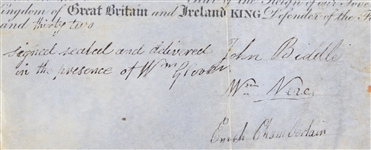 Kingdom of Great Britain and Ireland KING, Defender of the
and thirty two
signed sealed and delivered
in the presence of Wm Glover
John Biddle
Wm Vere
Enoch Chamberlain